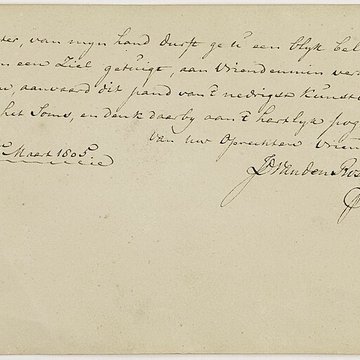 ter, van mijn hand durft ge u een blyk bel
n een Ziel getuigt, aan Vriendinnen ver
n, aanvaard dit pand van 't nedrigst kunst
het Soms, en denk daarby aan 't hartlyk pog
Van uw Oprechten Vrien
Maart 1805